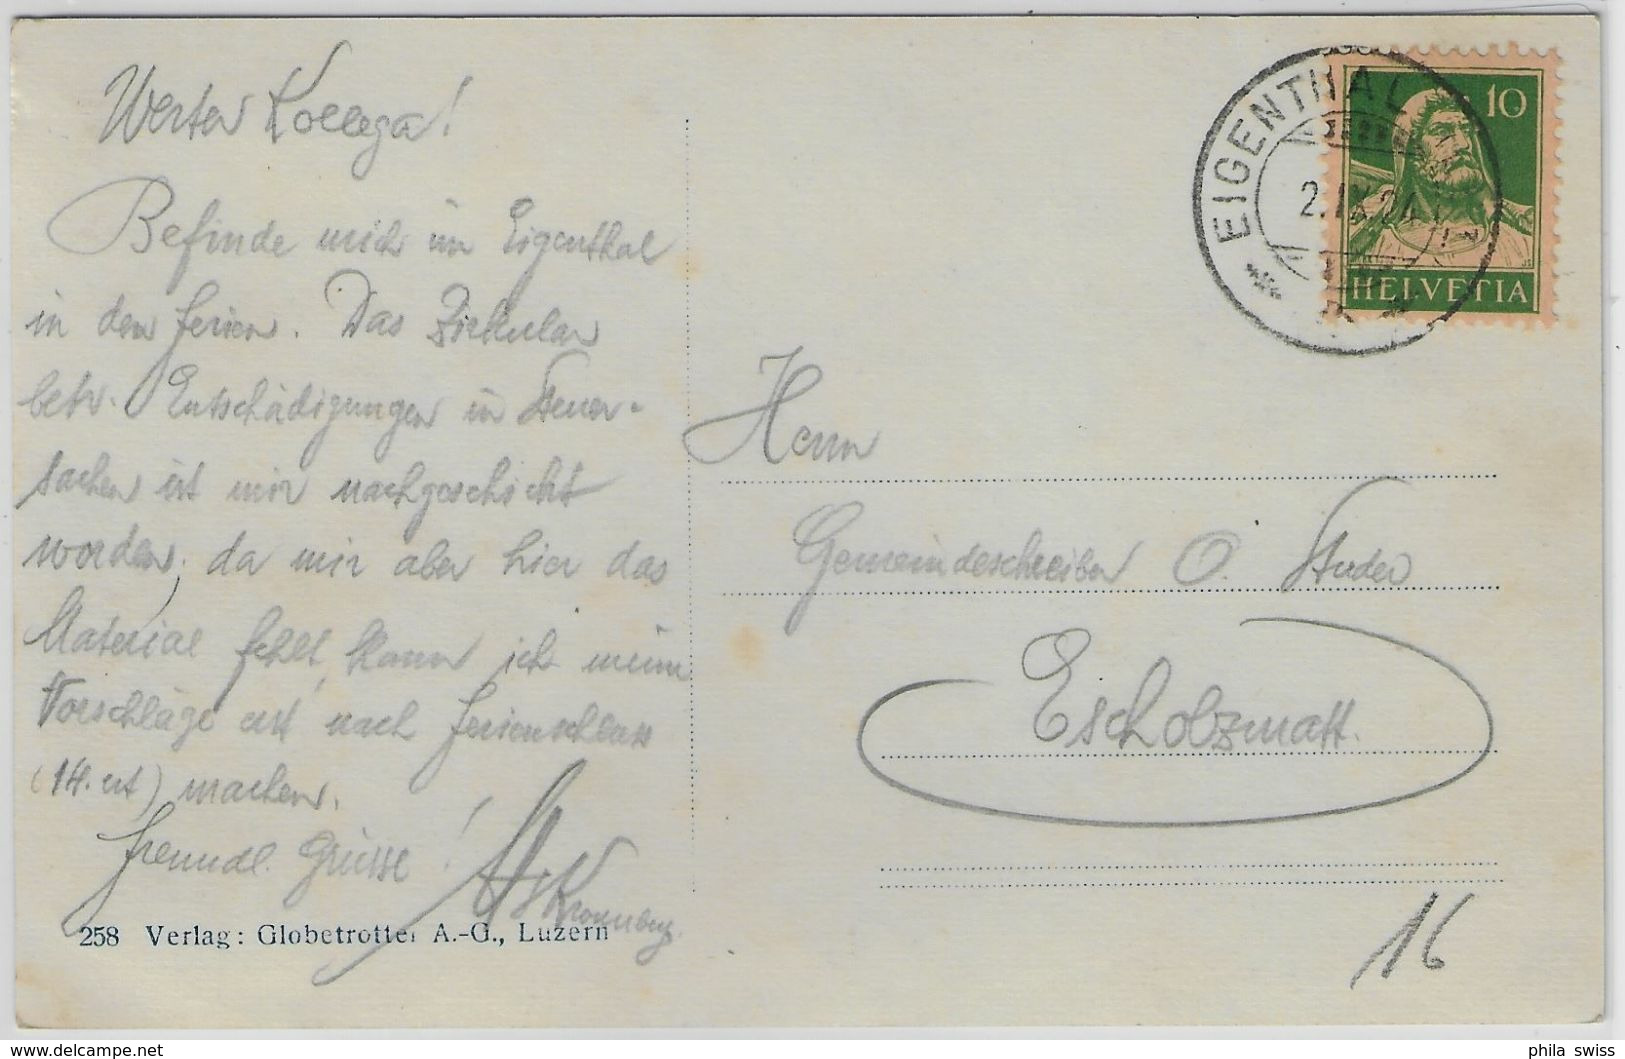 Werter Kollega!
Befinde mich im Eigenthal
in den Ferien. Das Zirkular
betr. Entschädigungen in Steuer-
sachen ist mir nachgeschickt
worden; da mir aber hier das
Material fehlt, kann ich meine
Vorschläge erst nach Ferienschluss
(14. ct) machen.
Freundl. Grüsse!
Kronenberg.
258 Verlag: Globetrotter A.-G., Luzern
EIGENTHAL
2.IX.24
10
HELVETIA
Herrn
Gemeindeschreiber O. Studer
Escholzmatt.
16
delcampe.net
phila_swiss